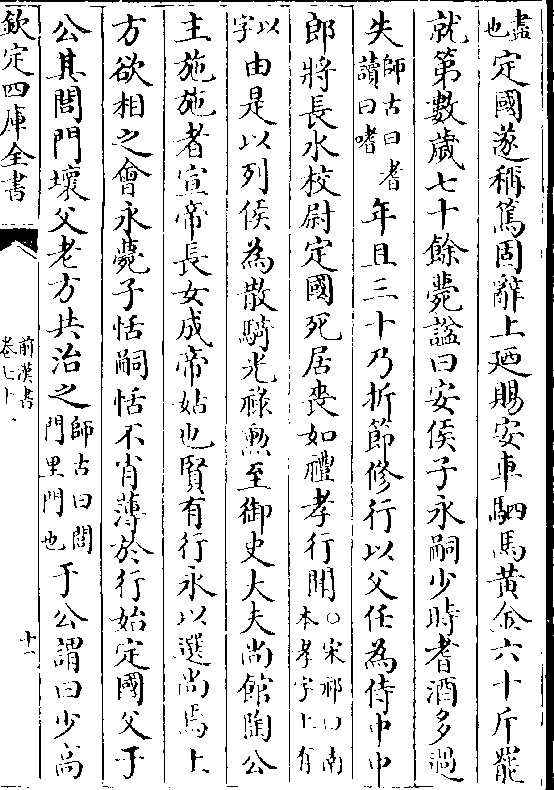 盡也定國遂稱篤固辭上廼賜安車駟馬黃金六十斤罷
就第數歲七十餘薨諡曰安侯子永嗣少時耆酒多過
失師古曰耆讀曰嗜年且三十乃折節修行以父任為侍中中
郎將長水校尉定國死居喪如禮孝行聞○宋祁曰南本孝字上有
以字由是以列侯為散騎光祿勲至御史大夫尚館陶公
主施施者宣帝長女成帝姑也賢有行永以選尚焉上
方欲相之會永薨子恬嗣恬不肖薄於行始定國父于
公其閭門壞父老方共治之師古曰閭門里門也于公謂曰少高
欽定四庫全書
前漢書
卷七十一
十二